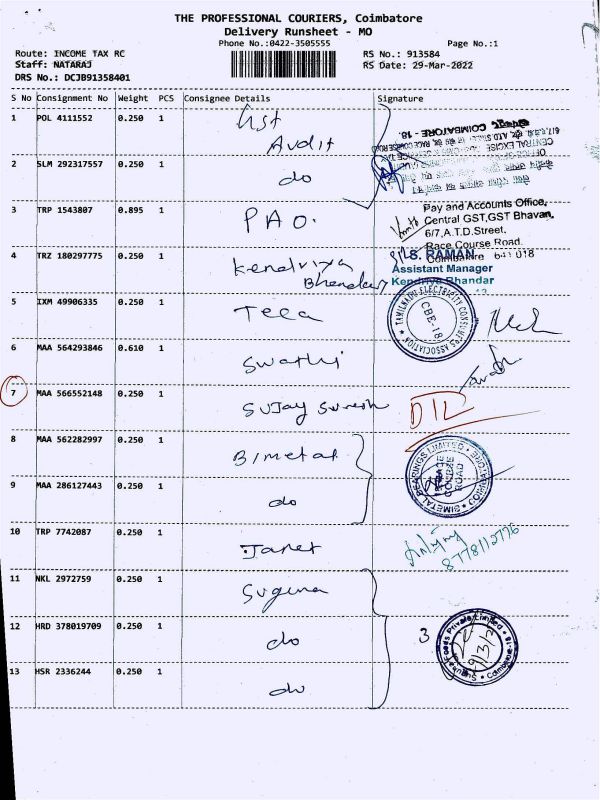 THE PROFESSIONAL COURIERS, Coimbatore
Delivery Runsheet - MO
Phone No.:0422-3505555
Page No.:1
Route: INCOME TAX RC
RS No.: 913584
Staff: NATARAJ
RS Date: 29-Mar-2022
DRS No.: DCJB91358401
S No Consignment No Weight PCS Consignee Details Signature
1 POL 4111552 0.250 1 Gst Audit
COIMBATORE - 18.
2 SLM 292317557 0.250 1 do
3 TRP 1543807 0.895 1 PAO.
Pay and Accounts Office,
Central GST,GST Bhavan,
6/7,A.T.D.Street,
Race Course Road.
Coimbatore 641 018
4 TRZ 180297775 0.250 1 Kendriya Bhandar
S. RAMAN
Assistant Manager
Kendriya Bhandar
5 IXM 49906335 0.250 1 Teca
TAMILNADU ELECTRICITY CONSUMERS ASSOCIATION
CBE-18
6 MAA 564293846 0.610 1 Swathi
7 MAA 566552148 0.250 1 Sujay Suresh
DIL
8 MAA 562282997 0.250 1 Bimetal
BIMETAL BEARINGS LIMITED COIMBATORE
RACE COURSE ROAD
9 MAA 286127443 0.250 1 do
10 TRP 7742087 0.250 1 Janet
8778112776
11 NKL 2972759 0.250 1 Suguna
12 HRD 378019709 0.250 1 do
3
Suguna Foods Private Limited Coimbatore-18
13 HSR 2336244 0.250 1 do